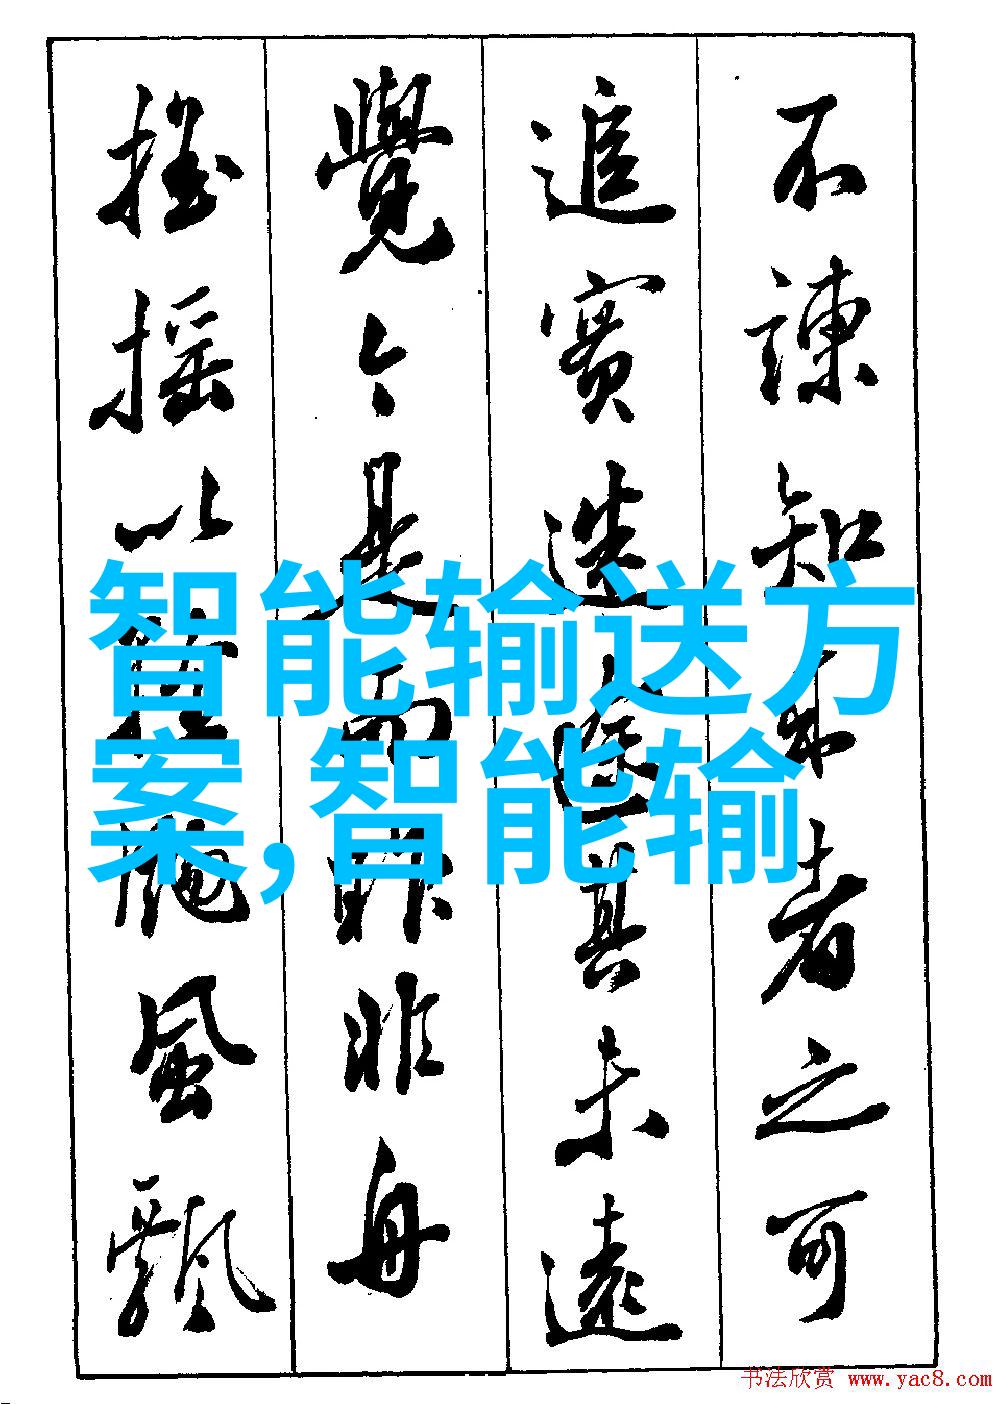 不諫知來者之可
追實迷途其未遠
覺今是而昨非舟
搖搖以輕颺風飄
智能输送方
案,智能输
书法欣赏 www.yac8.com